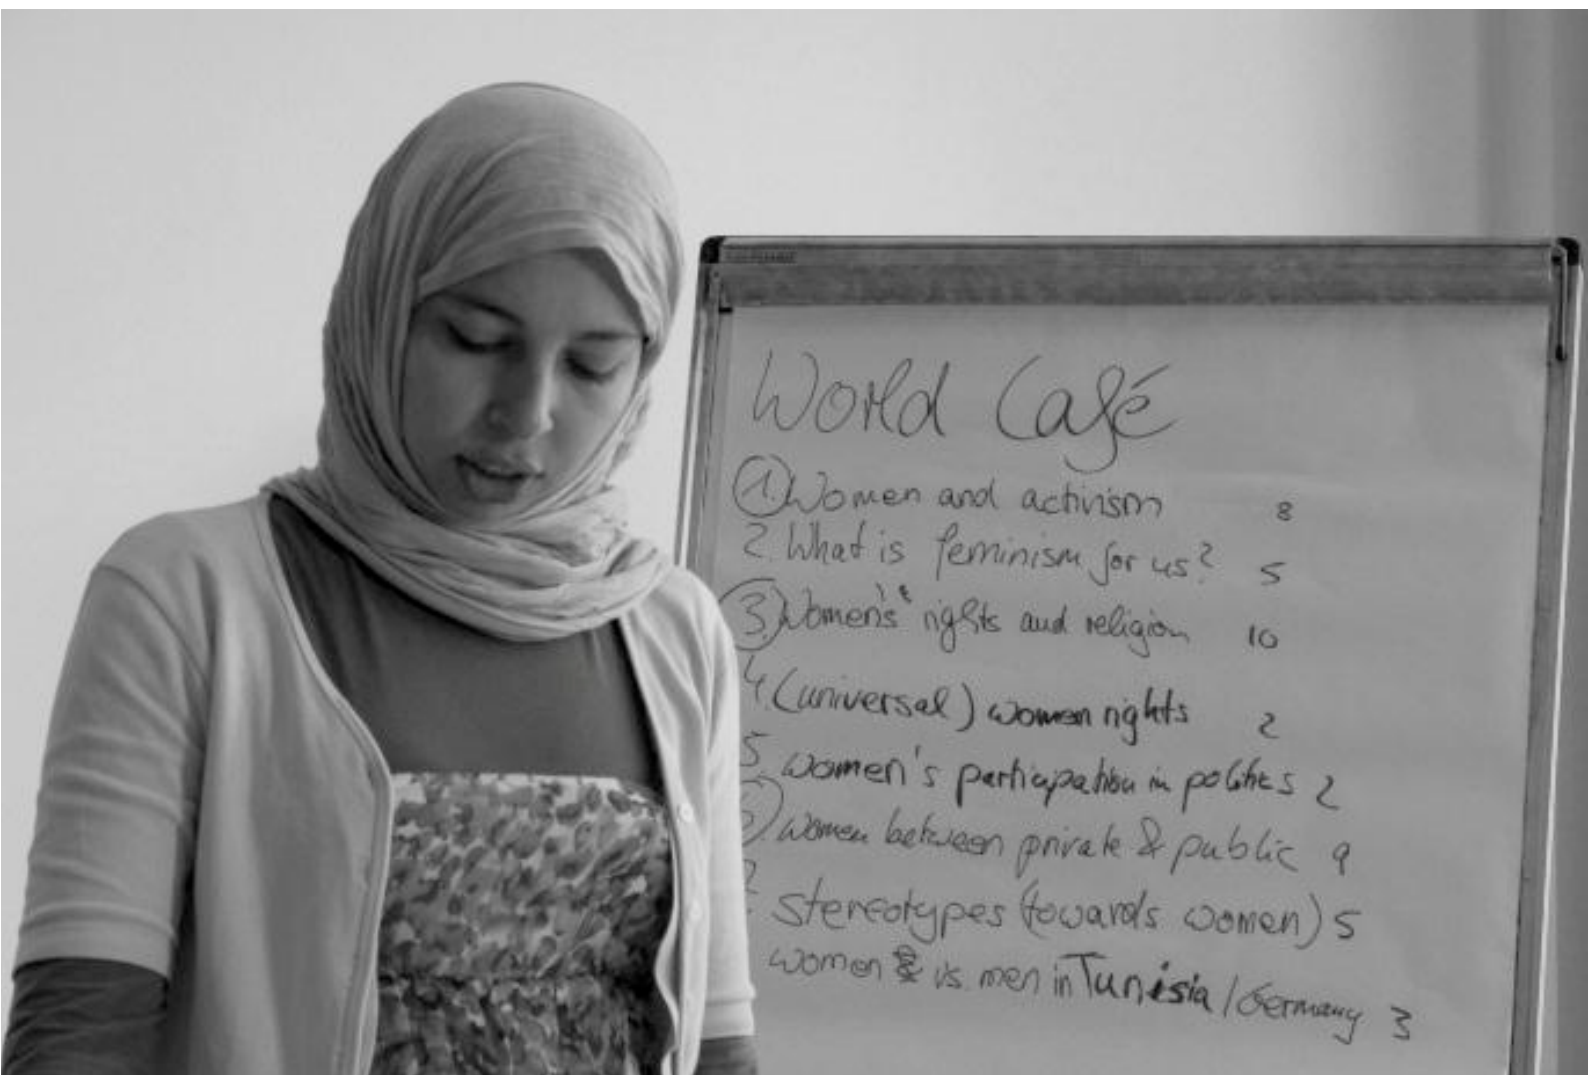 World Café
1. Women and activism 8
2. What is feminism for us? 5
3. Women's rights and religion 10
4 (universal) women rights 2
5. women's participation in politics 2
women between private & public 9
stereotypes (towards women) 5
women vs men in Tunisia / Germany 3